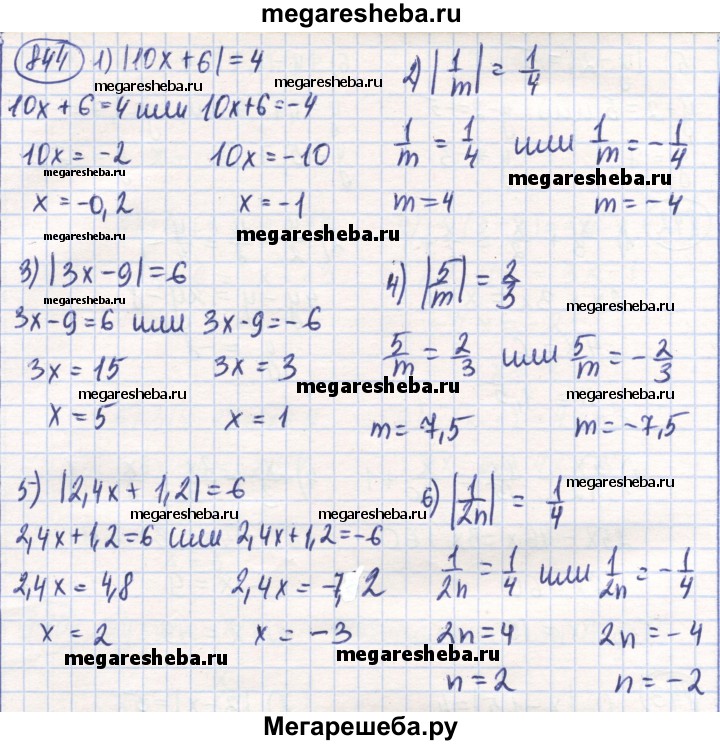 megaresheba.ru
844 1) |10x + 6| = 4
10x + 6 = 4 или 10x+6 = -4
10x = -2 10x = -10
x = -0,2 x = -1
2) |1/m| = 1/4
1/m = 1/4 или 1/m = -1/4
m = 4 m = -4
megaresheba.ru
megaresheba.ru
megaresheba.ru
megaresheba.ru
megaresheba.ru
megaresheba.ru
3) |3x - 9| = 6
3x - 9 = 6 или 3x - 9 = -6
3x = 15 3x = 3
x = 5 x = 1
4) |5/m| = 2/3
5/m = 2/3 или 5/m = -2/3
m = 7,5 m = -7,5
megaresheba.ru
megaresheba.ru
megaresheba.ru
megaresheba.ru
megaresheba.ru
5) |2,4x + 1,2| = 6
2,4x + 1,2 = 6 или 2,4x + 1,2 = -6
2,4x = 4,8 2,4x = -7,2
x = 2 x = -3
6) |1/2n| = 1/4
1/2n = 1/4 или 1/2n = -1/4
2n = 4 2n = -4
n = 2 n = -2
megaresheba.ru
megaresheba.ru
megaresheba.ru
megaresheba.ru
megaresheba.ru
Мегарешеба.ру